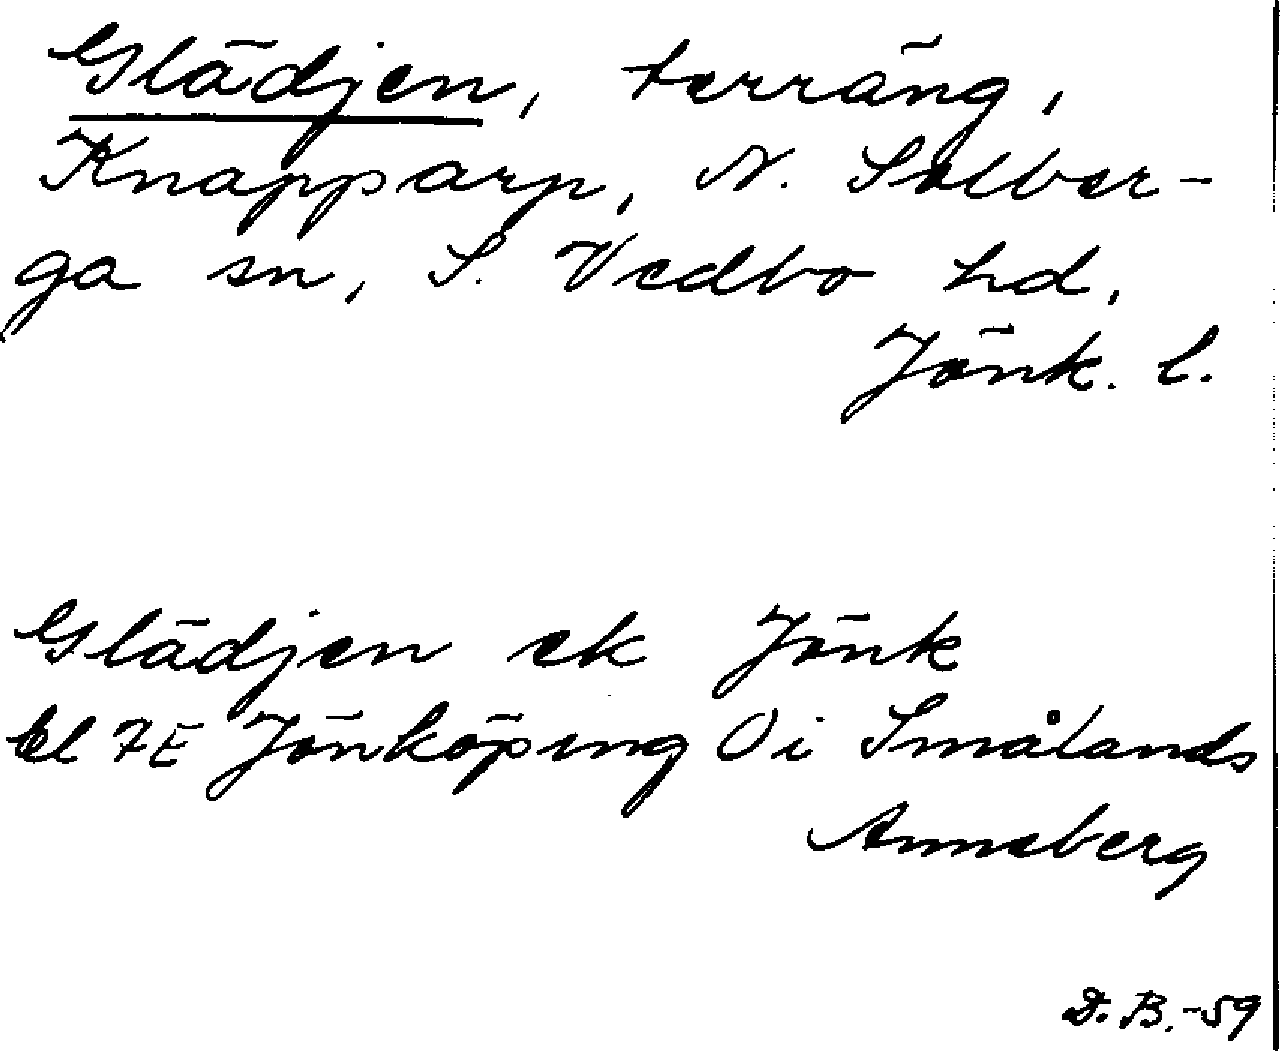 Glädjen, terräng,
Knapparp, N. Solber-
ga sn, S. Vedbo hd,
Jönk. l.
Glädjen ek Jönk
bl 7E Jönköping O i Smålands
Anneberg
D. B. -59